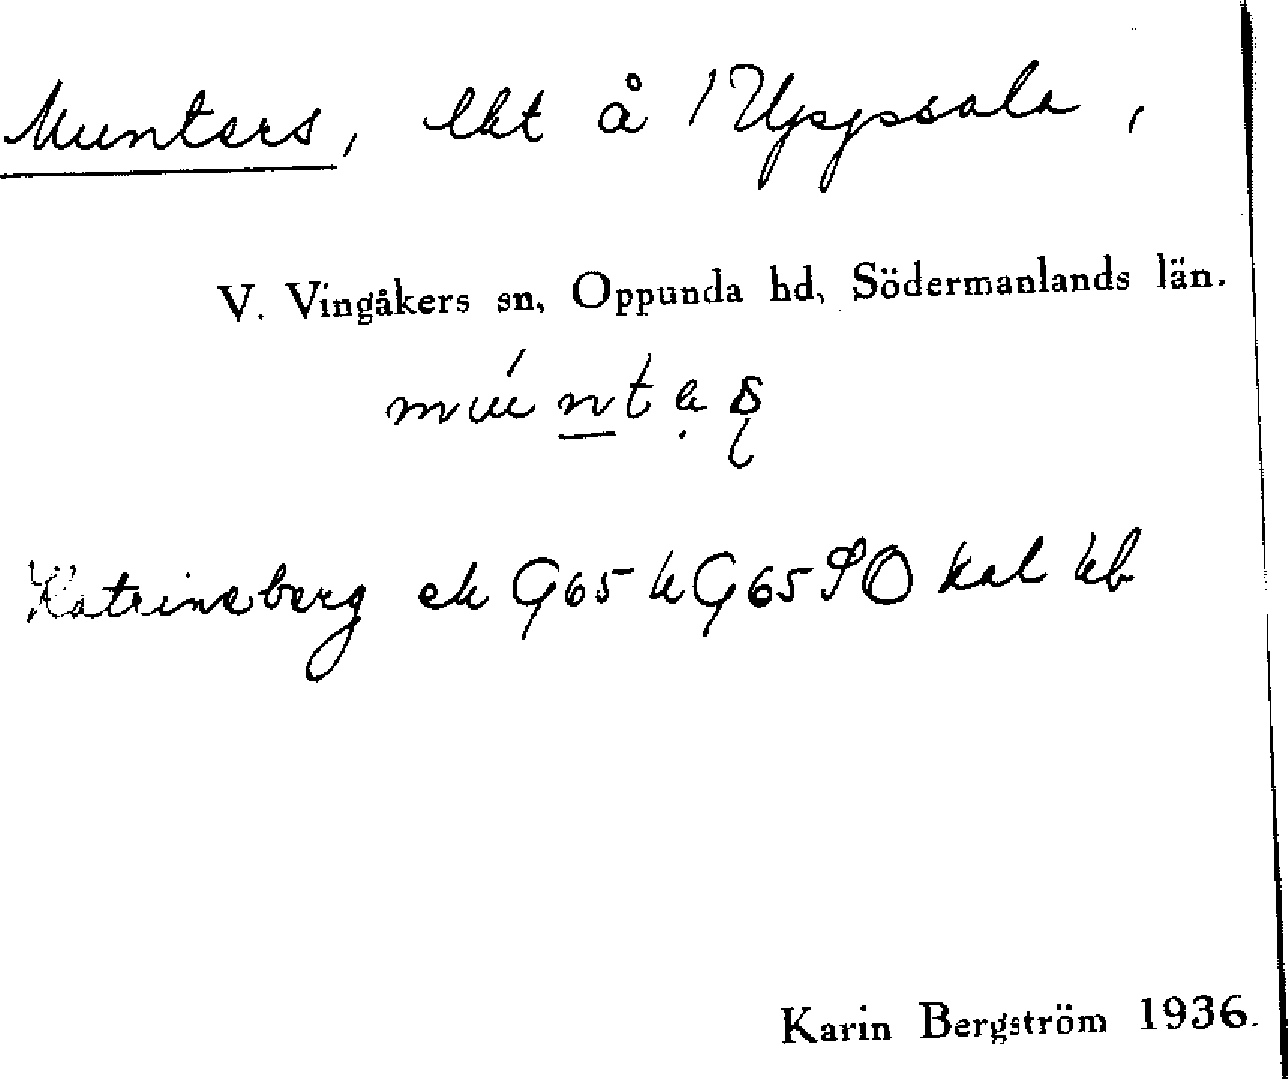 Munters, lht å 1 Uppsala,
V. Vingåkers sn, Oppunda hd, Södermanlands län.
Katrineberg ek G65 k G65 SO kal kb
Karin Bergström 1936.